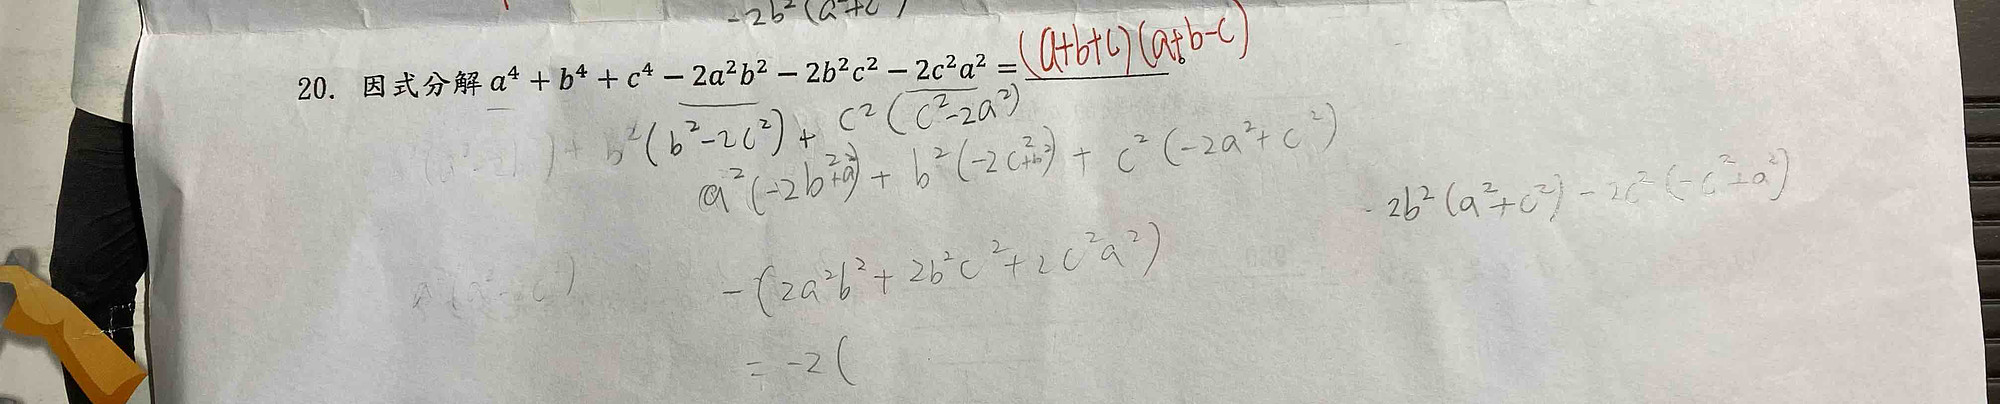 -2b²(a²+c²)
20. 因式分解 a⁴ + b⁴ + c⁴ − 2a²b² − 2b²c² − 2c²a² = (a+b+c)(a+b-c)。
+ b²(b²-2c²) + c²(c²-2a²)
a²(-2b²+a²) + b²(-2c²+b²) + c²(-2a²+c²)
-2b²(a²+c²) - 2c²(-c²+a²)
-(2a²b²+2b²c²+2c²a²)
= -2(